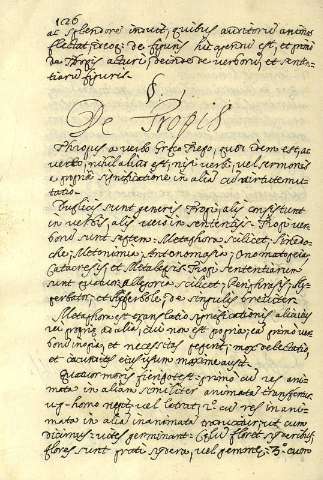 126
ac splendore induit, quibus auditorum animos
flectat præcip: de figuris hic agendum est, et primo
de Tropis acturi, deinde de verborum, et senten-
tiarum figuris.
§.
De Tropis
Thropus a verbo Græco Trepo, quod idem est, ac
verto, nihil aliud est, nisi verbi, vel sermonis
a propria significatione in aliam cum virtute mu-
tatio.
Duplicis sunt generis Tropi, alii consistunt
in verbis, alii vero in sententiis. Tropi ver-
borum sunt septem. Metaphora scilicet, Sinedo-
che, Metonimia, Antonomasia, Onomatopeia,
Catacresis, et Metalepsis. Tropi sententiarum
sunt quatuor Allegoria scilicet, Periphrasis, Hy-
perbaton, et Hyperbole; de singulis breviter.
Metaphora est translatio significationis alicuius
rei propriæ ad aliam, cui non est propria, eam primo ver-
borum inopia, et necessitas peperit, mox delectatio
et iucunditas eius usum maxime auxit.
Quatuor modis fieri potest: primo cum res ani-
mata in aliam similiter animatam transfertur,
ut homo neptunus, vel latrat; 2º cum res inani-
mata in aliam inanimatam transfertur, ut cum
dicimus: vites gemmant: Cælum floret syderibus,
flores sunt prati sydera, vel gemmæ; 3º cum